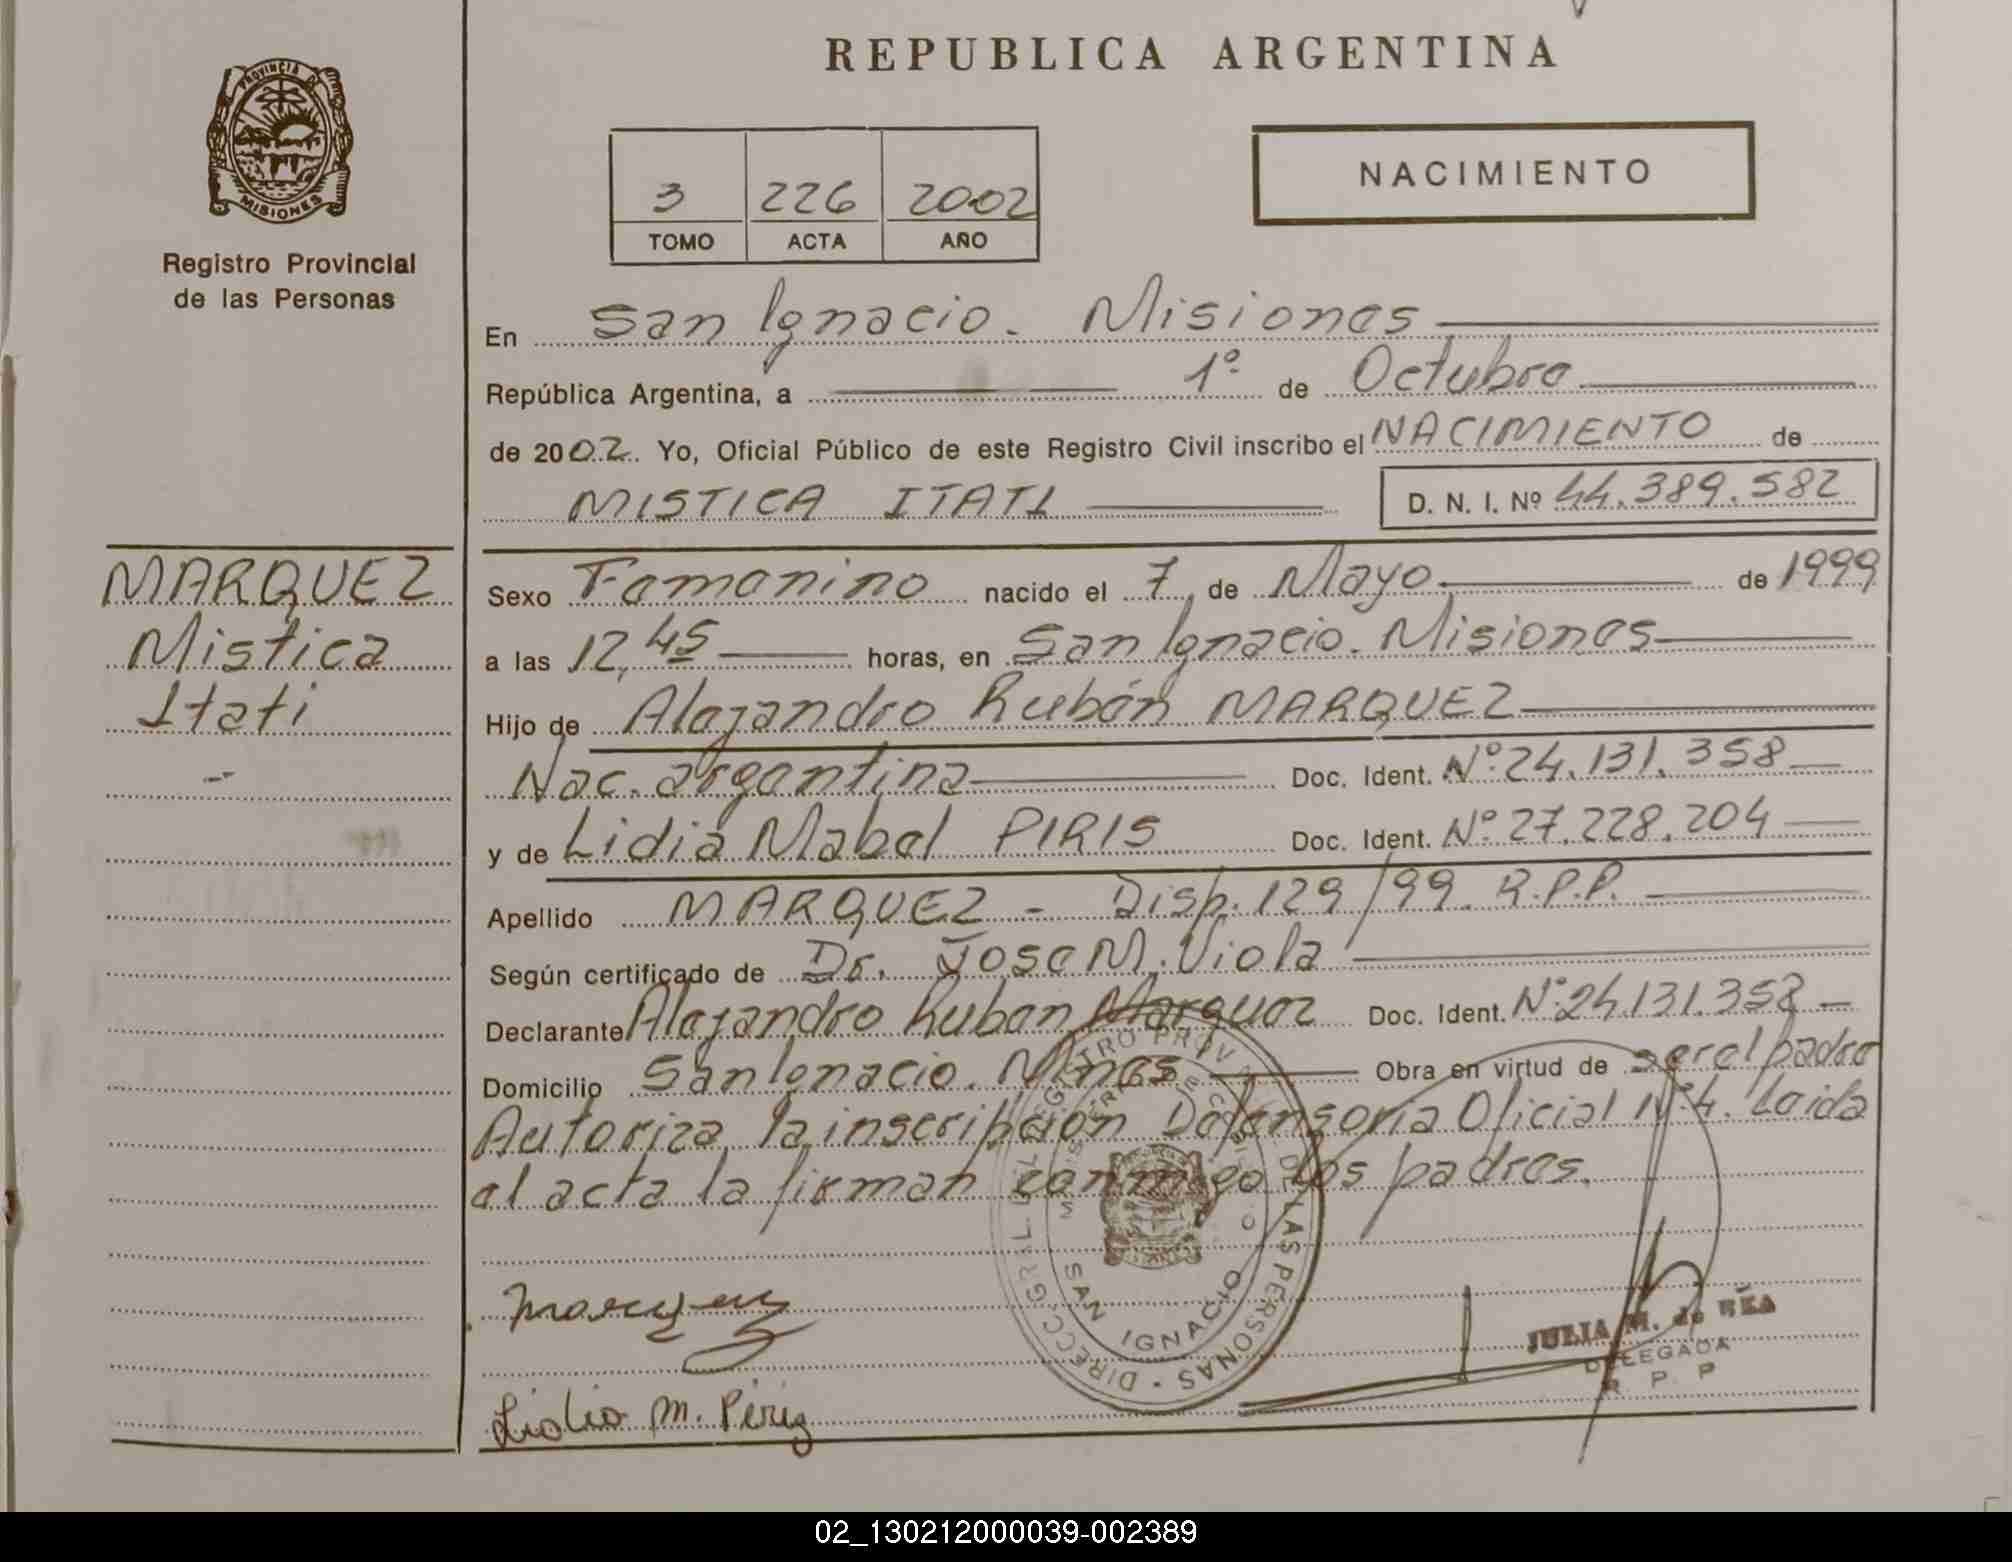 REPUBLICA ARGENTINA
PROVINCIA DE
MISIONES
Registro Provincial
de las Personas
3 226 2002
TOMO ACTA AÑO
NACIMIENTO
En San Ignacio. Misiones
República Argentina, a 1º de Octubre
de 2002. Yo, Oficial Público de este Registro Civil inscribo el NACIMIENTO de
MISTICA ITATI D. N. I. Nº 44.389.582
MARQUEZ
Mistica
Itati
Sexo Femenino nacido el 7 de Mayo de 1999
a las 12,45 horas, en San Ignacio. Misiones
Hijo de Alejandro Rubén MARQUEZ
Nac. argentina Doc. Ident. Nº 24.131.358
y de Lidia Mabel PIRIS Doc. Ident. Nº 27.228.204
Apellido MARQUEZ - Disp. 129/99. R.P.P.
Según certificado de Dr. Jose M. Viola
Declarante Alejandro Ruben Marquez Doc. Ident. Nº 24.131.358
Domicilio San Ignacio. Mnes Obra en virtud de ser el padre
Autoriza la inscripción Defensoria Oficial N.4. Leida
el acta la firman conmigo los padres.
Marquez
Lidia M. Piriz
DIRECC. GRAL. DEL REGISTRO PROV. DE LAS PERSONAS
SAN IGNACIO
JULIA M. de
DELEGADA
R. P. P
02_130212000039-002389